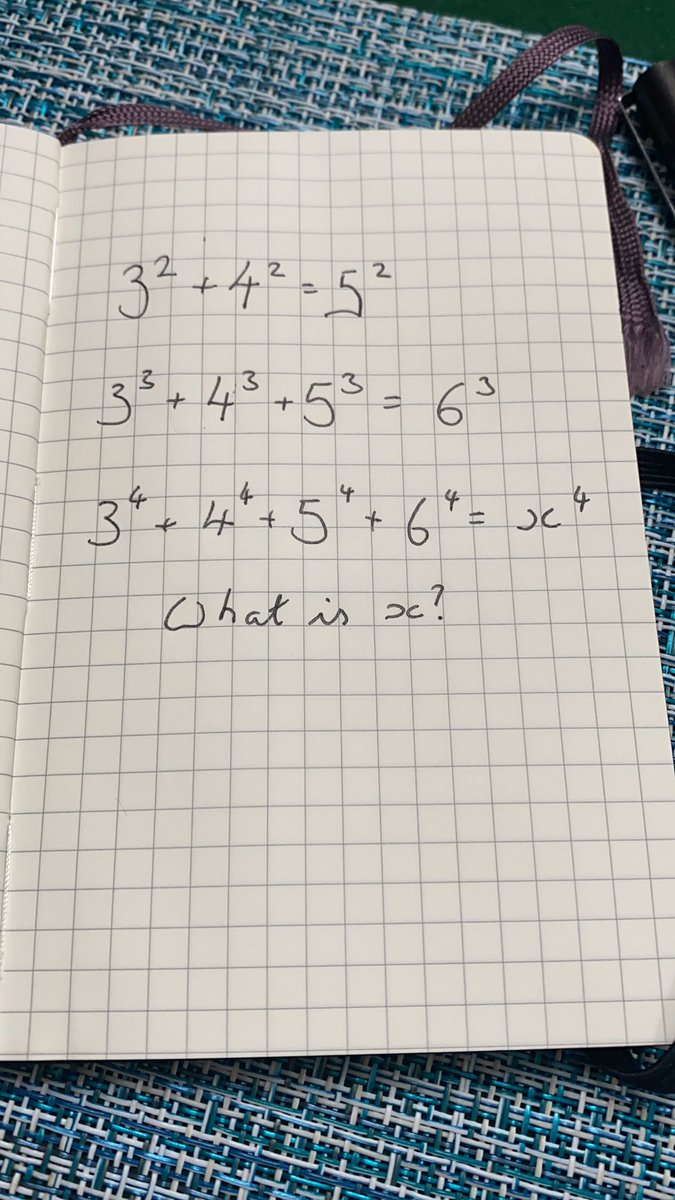 3² + 4² = 5²
3³ + 4³ + 5³ = 6³
3⁴ + 4⁴ + 5⁴ + 6⁴ = x⁴
What is x?